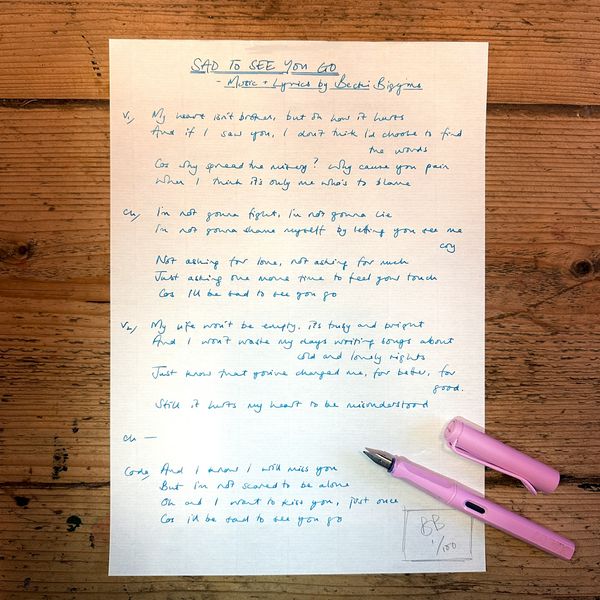 SAD TO SEE YOU GO
- Music + Lyrics by Becki Biggins
V1, My heart isn't broken, but oh how it hurts
And if I saw you, I don't think I'd choose to find
the words
Cos why spread the misery? Why cause you pain
When I think it's only me who's to blame
Ch, I'm not gonna fight, I'm not gonna lie
I'm not gonna shame myself by letting you see me
cry
Not asking for love, not asking for much
Just asking one more time to feel your touch
Cos I'll be sad to see you go
V2, My life won't be empty, it's busy and bright
And I won't waste my days writing songs about
cold and lonely nights
Just know that you've changed me, for better, for
good.
Still it hurts my heart to be misunderstood
Ch —
Coda, And I know I will miss you
But I'm not scared to be alone
Oh and I want to kiss you, just once
Cos I'll be sad to see you go
BB
1/100